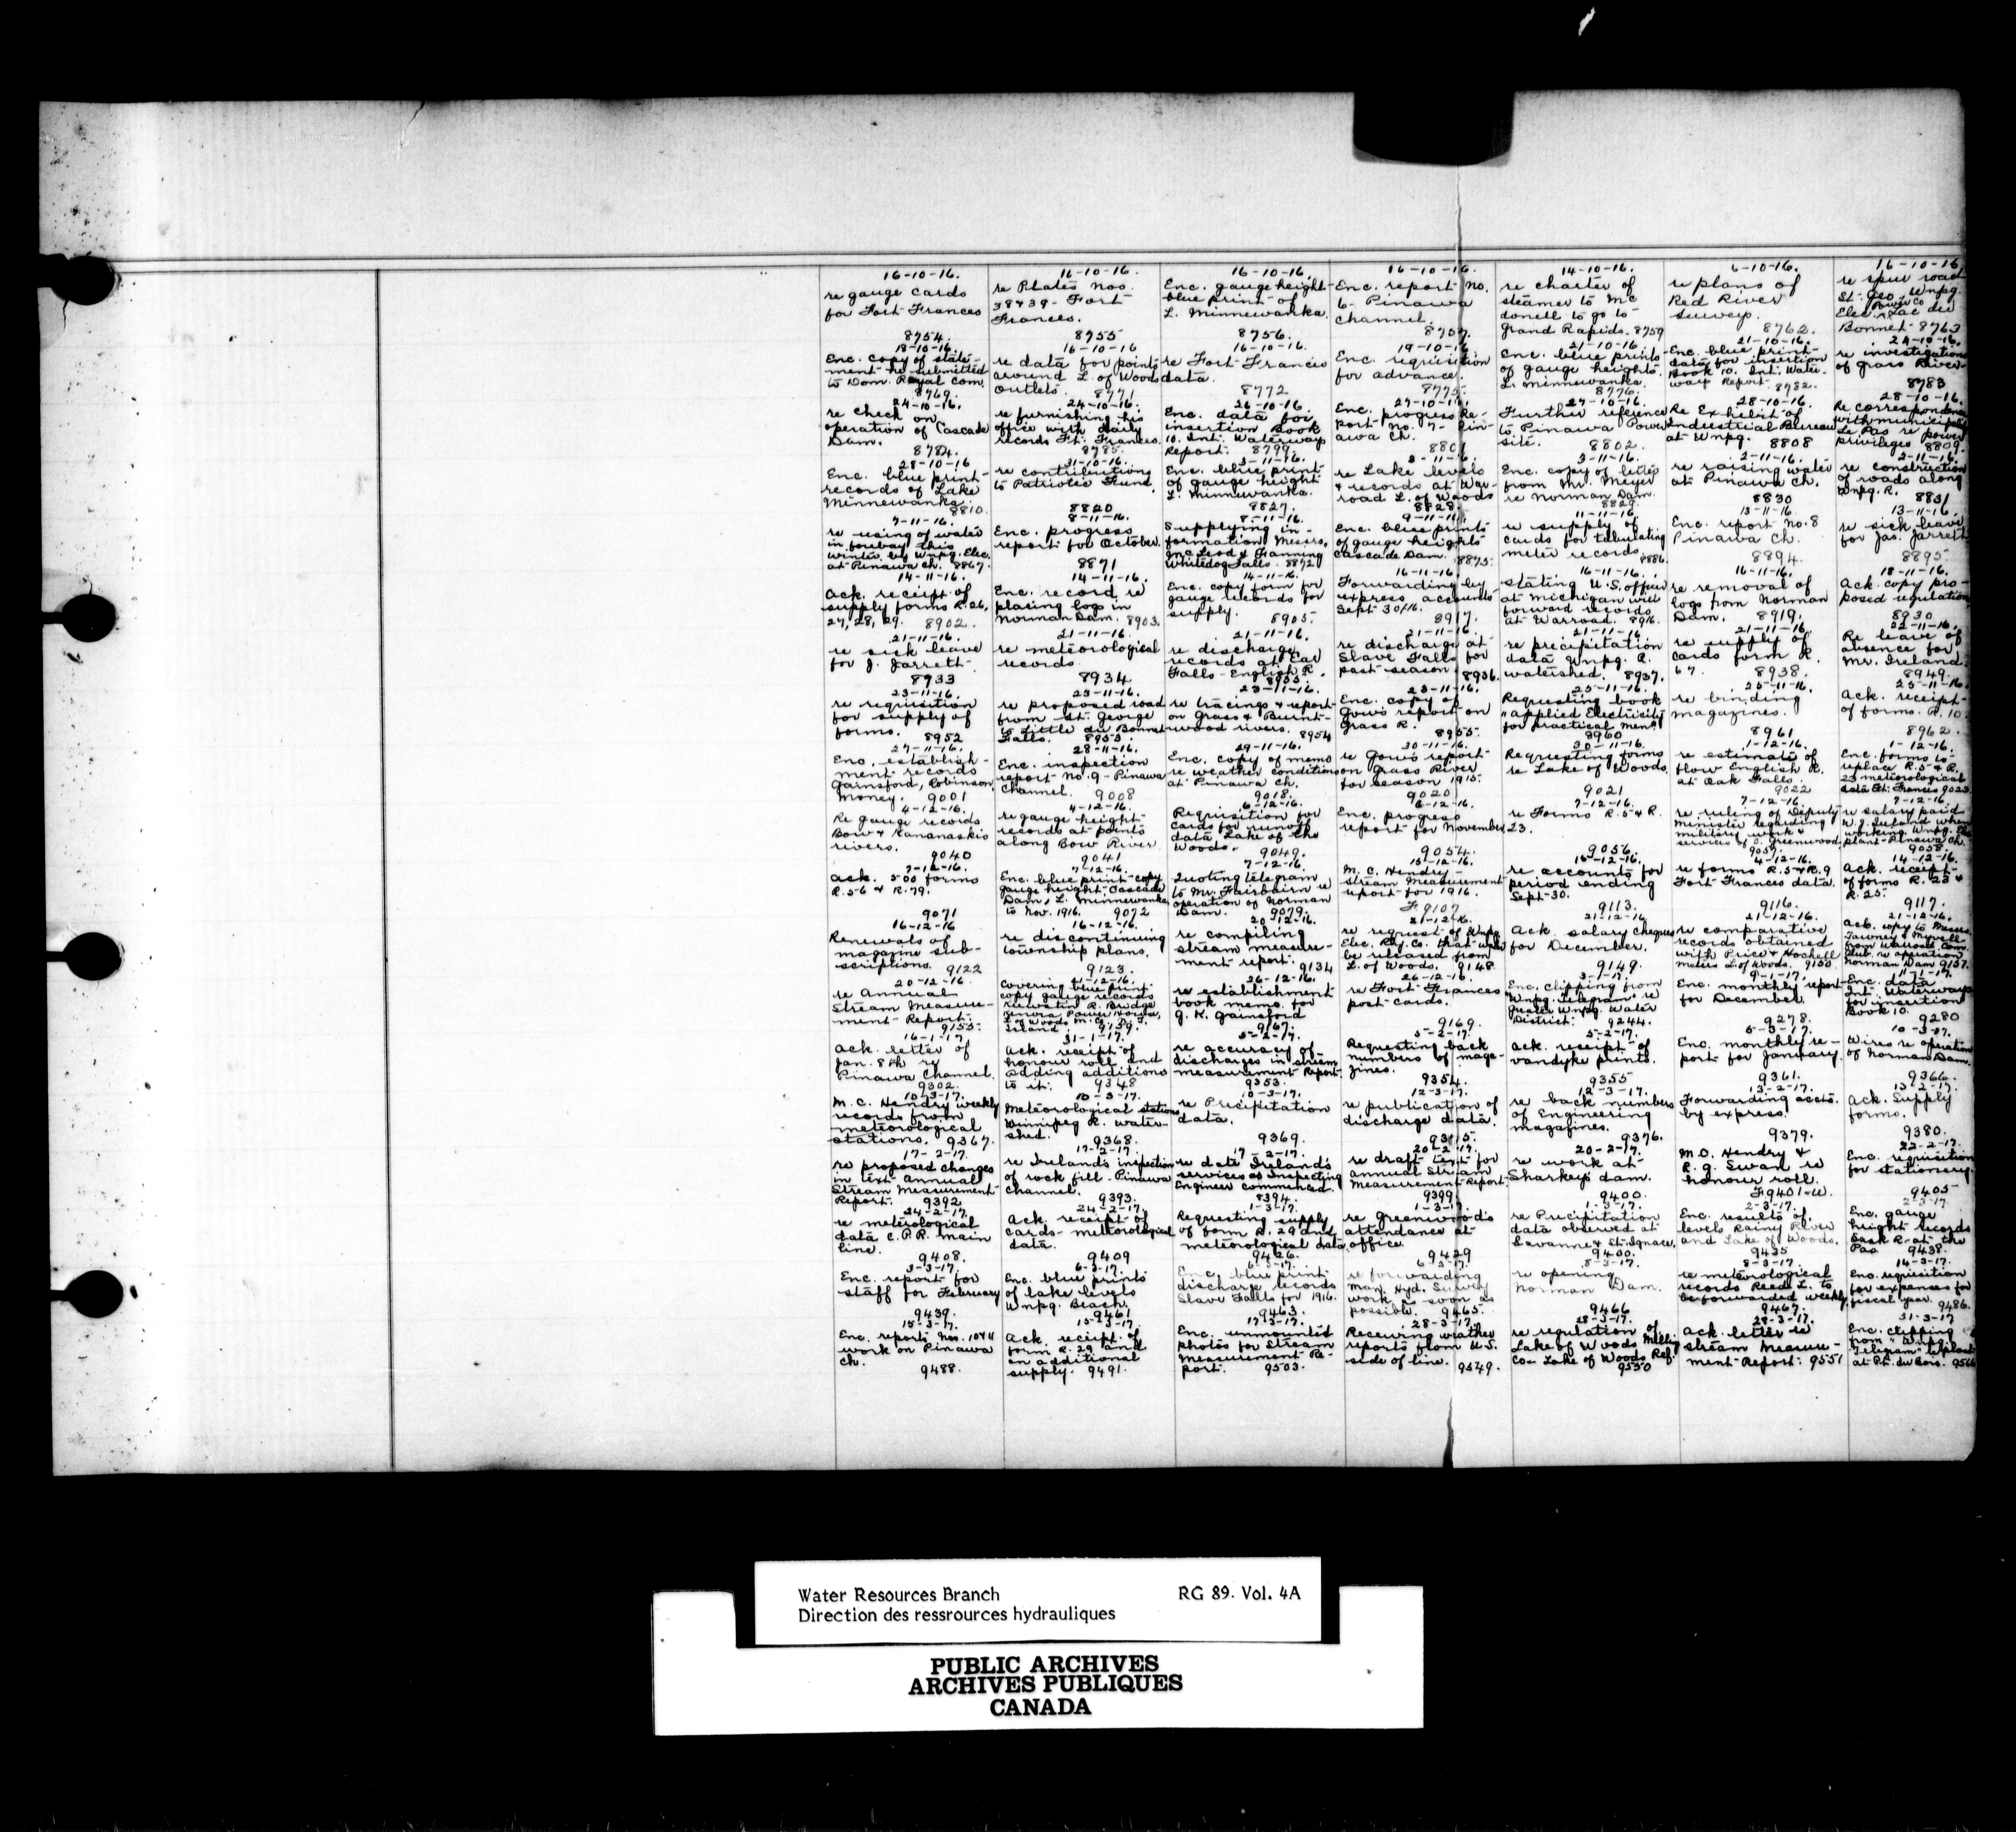 16-10-16.
re gauge cards
for Fort Frances
8754.
16-10-16.
re Plates Nos.
38 & 39 - Fort
Frances.
8755
16-10-16.
Enc. gauge height
blue print of
L. Minnewanka.
8756.
16-10-16.
Enc. report No.
6 - Pinawa
Channel.
8757.
14-10-16.
re charter of
steamer to Mc
donell to go to
Grand Rapids. 8759
6-10-16.
re plans of
Red River
Survey.
8762.
16-10-16
re spur road
St. Geo. Wnpg.
Power Co
Elec. Lac du
Bonnet 8763
18-10-16.
Enc. copy of state-
ment re submitted
to Dom. Royal Com.
8769.
16-10-16
re data for points
around L. of Woods
outlets. 8771
16-10-16.
re Fort Frances
data.
8772
19-10-16
Enc. requisition
for advance.
8775.
21-10-16.
Enc. blue prints
of gauge heights
L. Minnewanka.
8776.
21-10-16.
Enc. blue print
data for insertion
Book 10. Int. Water-
way Report 8782.
24-10-16.
re investigations
of Grass River
8783
24-10-16.
re check on
operation of Cascade
Dam.
8784.
24-10-16.
re furnishing his
office with daily
records Ft. Frances.
8785.
26-10-16
Enc. data for
insertion Book
10. Int. Waterway
Report. 8799.
27-10-16.
Enc. progress Re-
port No. 7 - Pin-
awa Ch.
8801
27-10-16.
Further reference
to Pinawa Power
site.
8802.
28-10-16.
Re Exhibit of
Industrial Bureau
at Wnpg. 8808
28-10-16.
Re correspondence
with municipality
Le Pas re power
privileges 8809.
28-10-16
Enc. blue print
records of Lake
Minnewanka.
8810.
31-10-16.
re contributions
to Patriotic Fund.
8820
3-11-16.
Enc. blue print
of gauge height
L. Minnewanka.
8827.
2-11-16.
re Lake levels
& records at War-
road L. of Woods
8828.
3-11-16.
Enc. copy of letter
from Mr. Meyer
re Norman Dam.
8829.
2-11-16.
re raising water
at Pinawa Ch.
8830
2-11-16.
re construction
of roads along
Wnpg. R.
8831
7-11-16.
re using of water
in forebay this
winter by Wnpg. Elec.
at Pinawa Ch. 8867.
8-11-16.
Enc. progress
report for October.
8871
8-11-16.
Supplying in-
formation Messrs.
McLeod & Fanning
Whitedog Falls. 8872
9-11-16.
Enc. blue prints
of gauge heights
Cascade Dam.
8875.
11-11-16.
re supply of
cards for tabulating
meter records.
8886.
13-11-16.
Enc. report No. 8
Pinawa Ch.
8894.
13-11-16.
re sick leave
for Jas. Jarrett
8895
14-11-16.
Ack. receipt of
supply forms R. 26,
27, 28, 29. 8902.
14-11-16.
Enc. record re
placing logs in
Norman Dam. 8903.
14-11-16.
Enc. copy form for
gauge records for
supply.
8905.
16-11-16.
Forwarding by
express accounts
Sept 30/16.
8917.
16-11-16.
Stating U.S. officer
at Michigan will
forward records
at Warroad. 8916.
16-11-16.
re removal of
logs from Norman
Dam. 8919.
18-11-16.
Ack. copy pro-
posed regulation
8930
21-11-16.
re sick leave
for J. Jarrett.
8933
21-11-16.
re meteorological
records.
8934
21-11-16.
re discharge
records at Ear
Falls - English R.
8935.
21-11-16.
re discharge at
Slave Falls for
past season.
8936.
21-11-16.
re precipitation
data Wnpg. R.
watershed. 8937.
21-11-16.
re supply of
cards form R.
67. 8938.
22-11-16.
Re leave of
absence for
Mr. Ireland.
8949.
23-11-16.
re requisition
for supply of
forms.
8952
23-11-16.
re proposed road
from St. George
to Little du Bonnet
Falls. 8953.
23-11-16.
re tracings & report
on Grass & Burnt-
wood rivers.
8954
23-11-16.
Enc. copy of
Gow's report on
Grass R.
8955.
25-11-16.
Requesting book
"Applied Electricity
for practical men"
8960
25-11-16.
re binding
magazines.
8961
25-11-16.
Ack. receipt
of forms. R. 10.
8962.
27-11-16.
Enc. establish-
ment records
Gainsford, Robinson,
Money. 9001
28-11-16.
Enc. inspection
report No. 9 - Pinawa
Channel.
9008
29-11-16.
Enc. copy of memo
re weather conditions
at Pinawa Ch.
9018.
30-11-16.
re Gow's report
on Grass River
for season 1915.
9020
30-11-16.
Requesting forms
re Lake of Woods.
9021
1-12-16.
re estimate of
flow English R.
at Oak Falls.
9022
1-12-16.
Enc. forms to
replace R. 5 & R.
23 meteorological
data Ft. Frances 9023.
4-12-16.
Re gauge records
Bow & Kananaskis
rivers.
9040
4-12-16.
re gauge height
records at points
along Bow River.
9041
6-12-16.
Requisition for
cards for runoff
data Lake of the
Woods.
9049.
6-12-16.
Enc. progress
report for November.
9054.
7-12-16.
re Forms R. 5 & R.
23.
9056.
7-12-16.
re ruling of Deputy
Minister regarding
military work &
services of C. Greenwood.
9057.
7-12-16.
re salary paid
W. J. Ireland when
working Wnpg. Elec.
plant - Pinawa Ch.
9058.
7-12-16.
Ack. 500 forms
R. 56 & R. 79.
9071
7-12-16.
Enc. blue print copy
gauge height - Cascade
Dam & L. Minnewanka
to Nov. 1916. 9072
7-12-16
Quoting telegram
to Mr. Fairbairn re
operation of Norman
Dam. 9079.
15-12-16.
M. C. Hendry -
Stream Measurement
report for 1916.
F 9107
15-12-16.
re accounts for
period ending
Sept. 30.
9113.
4-12-16.
re forms R. 5 & R. 9
Fort Frances data.
9116.
14-12-16.
Ack. receipt
of forms R. 23 &
R. 25.
9117.
16-12-16
Renewals of
magazine sub-
scriptions. 9122
16-12-16.
re discontinuing
township plans.
9123.
20-12-16.
re compiling
stream measure-
ment report.
9134
21-12-16.
re request of Wnpg.
Elec. Rly. Co. that water
be released from
L. of Woods. 9148
21-12-16
Ack. salary cheques
for December.
9149.
21-12-16.
re comparative
records obtained
with Price & Hochell
meters L. of Woods. 9150
21-12-16.
Ack. copy to Messrs.
Tawney & Myvell
from Warroad Com.
Club re operation
Norman Dam 9157.
20-12-16.
re Annual
Stream Measure-
ment Report.
9155.
21-12-16.
Covering blue print
copy gauge records
Keewatin R. Bridge
Kenora Power House,
L. of Woods M. Co., D. F.
Island. 9159.
26-12-16.
re establishment
book memo. for
G. K. Gainsford
9167.
26-12-16.
re Fort Frances
post-cards.
9169.
3-1-17.
Enc. clipping from
"Wnpg. Telegram" re
Greater Wnpg. Water
District. 9244.
9-1-17.
Enc. monthly report
for December.
9278.
11-1-17.
Enc. data
Int. Waterways
for insertion
Book 10.
9280
16-1-17
Ack. letter of
Jan. 8th re
Pinawa Channel.
9302.
31-1-17.
Ack. receipt of
honour roll and
adding additions
to it. 9348
5-2-17.
re accuracy of
discharges in stream
measurement Report.
9353.
5-2-17.
Requesting back
numbers of maga-
zines.
9354.
5-2-17.
Ack. receipt of
vandyke prints.
9355
5-3-17.
Enc. monthly re-
port for January.
9361.
10-3-17.
Wires re operation
of Norman Dam.
9366.
10-3-17.
M. C. Hendry weekly
records from
meteorological
stations. 9367.
10-3-17.
Meteorological stations
Winnipeg R. water-
shed.
9368.
10-3-17.
re Precipitation
data.
9369.
12-3-17.
re publication of
discharge data.
12-3-17.
re back numbers
of Engineering
magazines.
9376.
13-2-17.
Forwarding accts.
by express.
9379.
13-2-17.
Ack. Supply
forms.
9380.
17-2-17.
re proposed changes
in text Annual
Stream Measurement
Report. 9392
17-2-17.
re Ireland's inspection
of rock fill - Pinawa
Channel.
9393.
17-2-17.
re date Ireland's
services as Inspecting
Engineer commenced.
8394.
20-2-17.
re draft text for
annual Stream
Measurement Report.
9399
20-2-17.
re work at
Sharkeys dam.
9400.
M. C. Hendry &
R. G. Swan re
honour roll.
F9401-W.
22-2-17.
Enc. requisition
for stationery.
9405
24-2-17.
re meterological
data C.P.R. main
line.
9408.
24-2-17.
Ack. receipt of
cards - meteorological
data.
9409
1-3-17.
Requesting supply
of form R. 29 and
meteorological data.
9426.
1-3-17.
re Greenwood's
attendance at
office.
9429
1-3-17.
re Precipitation
data observed at
Savanne & St. Ignace.
9430.
2-3-17.
Enc. results of
levels Rainy River
and Lake of Woods.
9435
2-3-17.
Enc. gauge
height records
Sask R. at the
Pas 9438.
3-3-17.
Enc. report for
staff for February
9439.
6-3-17.
Enc. blue prints
of lake levels
Wnpg. Beach.
9461
6-3-17.
Enc. blue print
discharge records
Slave Falls for 1916.
9463.
6-3-17.
re forwarding
Man. Hyd. Survey
work as soon as
possible. 9465.
8-3-17.
re opening
Norman Dam.
9466
8-3-17.
re meteorological
records Reed L. to
be forwarded weekly.
9467.
14-3-17.
Enc. requisition
for expenses for
fiscal year. 9486.
15-3-17.
Enc. reports Nos. 10 & 11
work on Pinawa
Ch.
9488.
15-3-17
Ack. receipt of
form R. 29 and
an additional
supply. 9491.
17-3-17.
Enc. unmounted
photos for Stream
Measurement Re-
port. 9503.
28-3-17.
Receiving weather
reports from U.S.
side of line. 9549.
28-3-17.
re regulation of
Lake of Woods Milling
Co - Lake of Woods Ref.
9550
29-3-17.
Ack. letter re
Stream Measure-
ment Report. 9551
31-3-17
Enc. clipping
from "Wnpg.
Telegram"
at Pt. du Bois.
Water Resources Branch RG 89. Vol. 4A
Direction des ressrources hydrauliques
PUBLIC ARCHIVES
ARCHIVES PUBLIQUES
CANADA